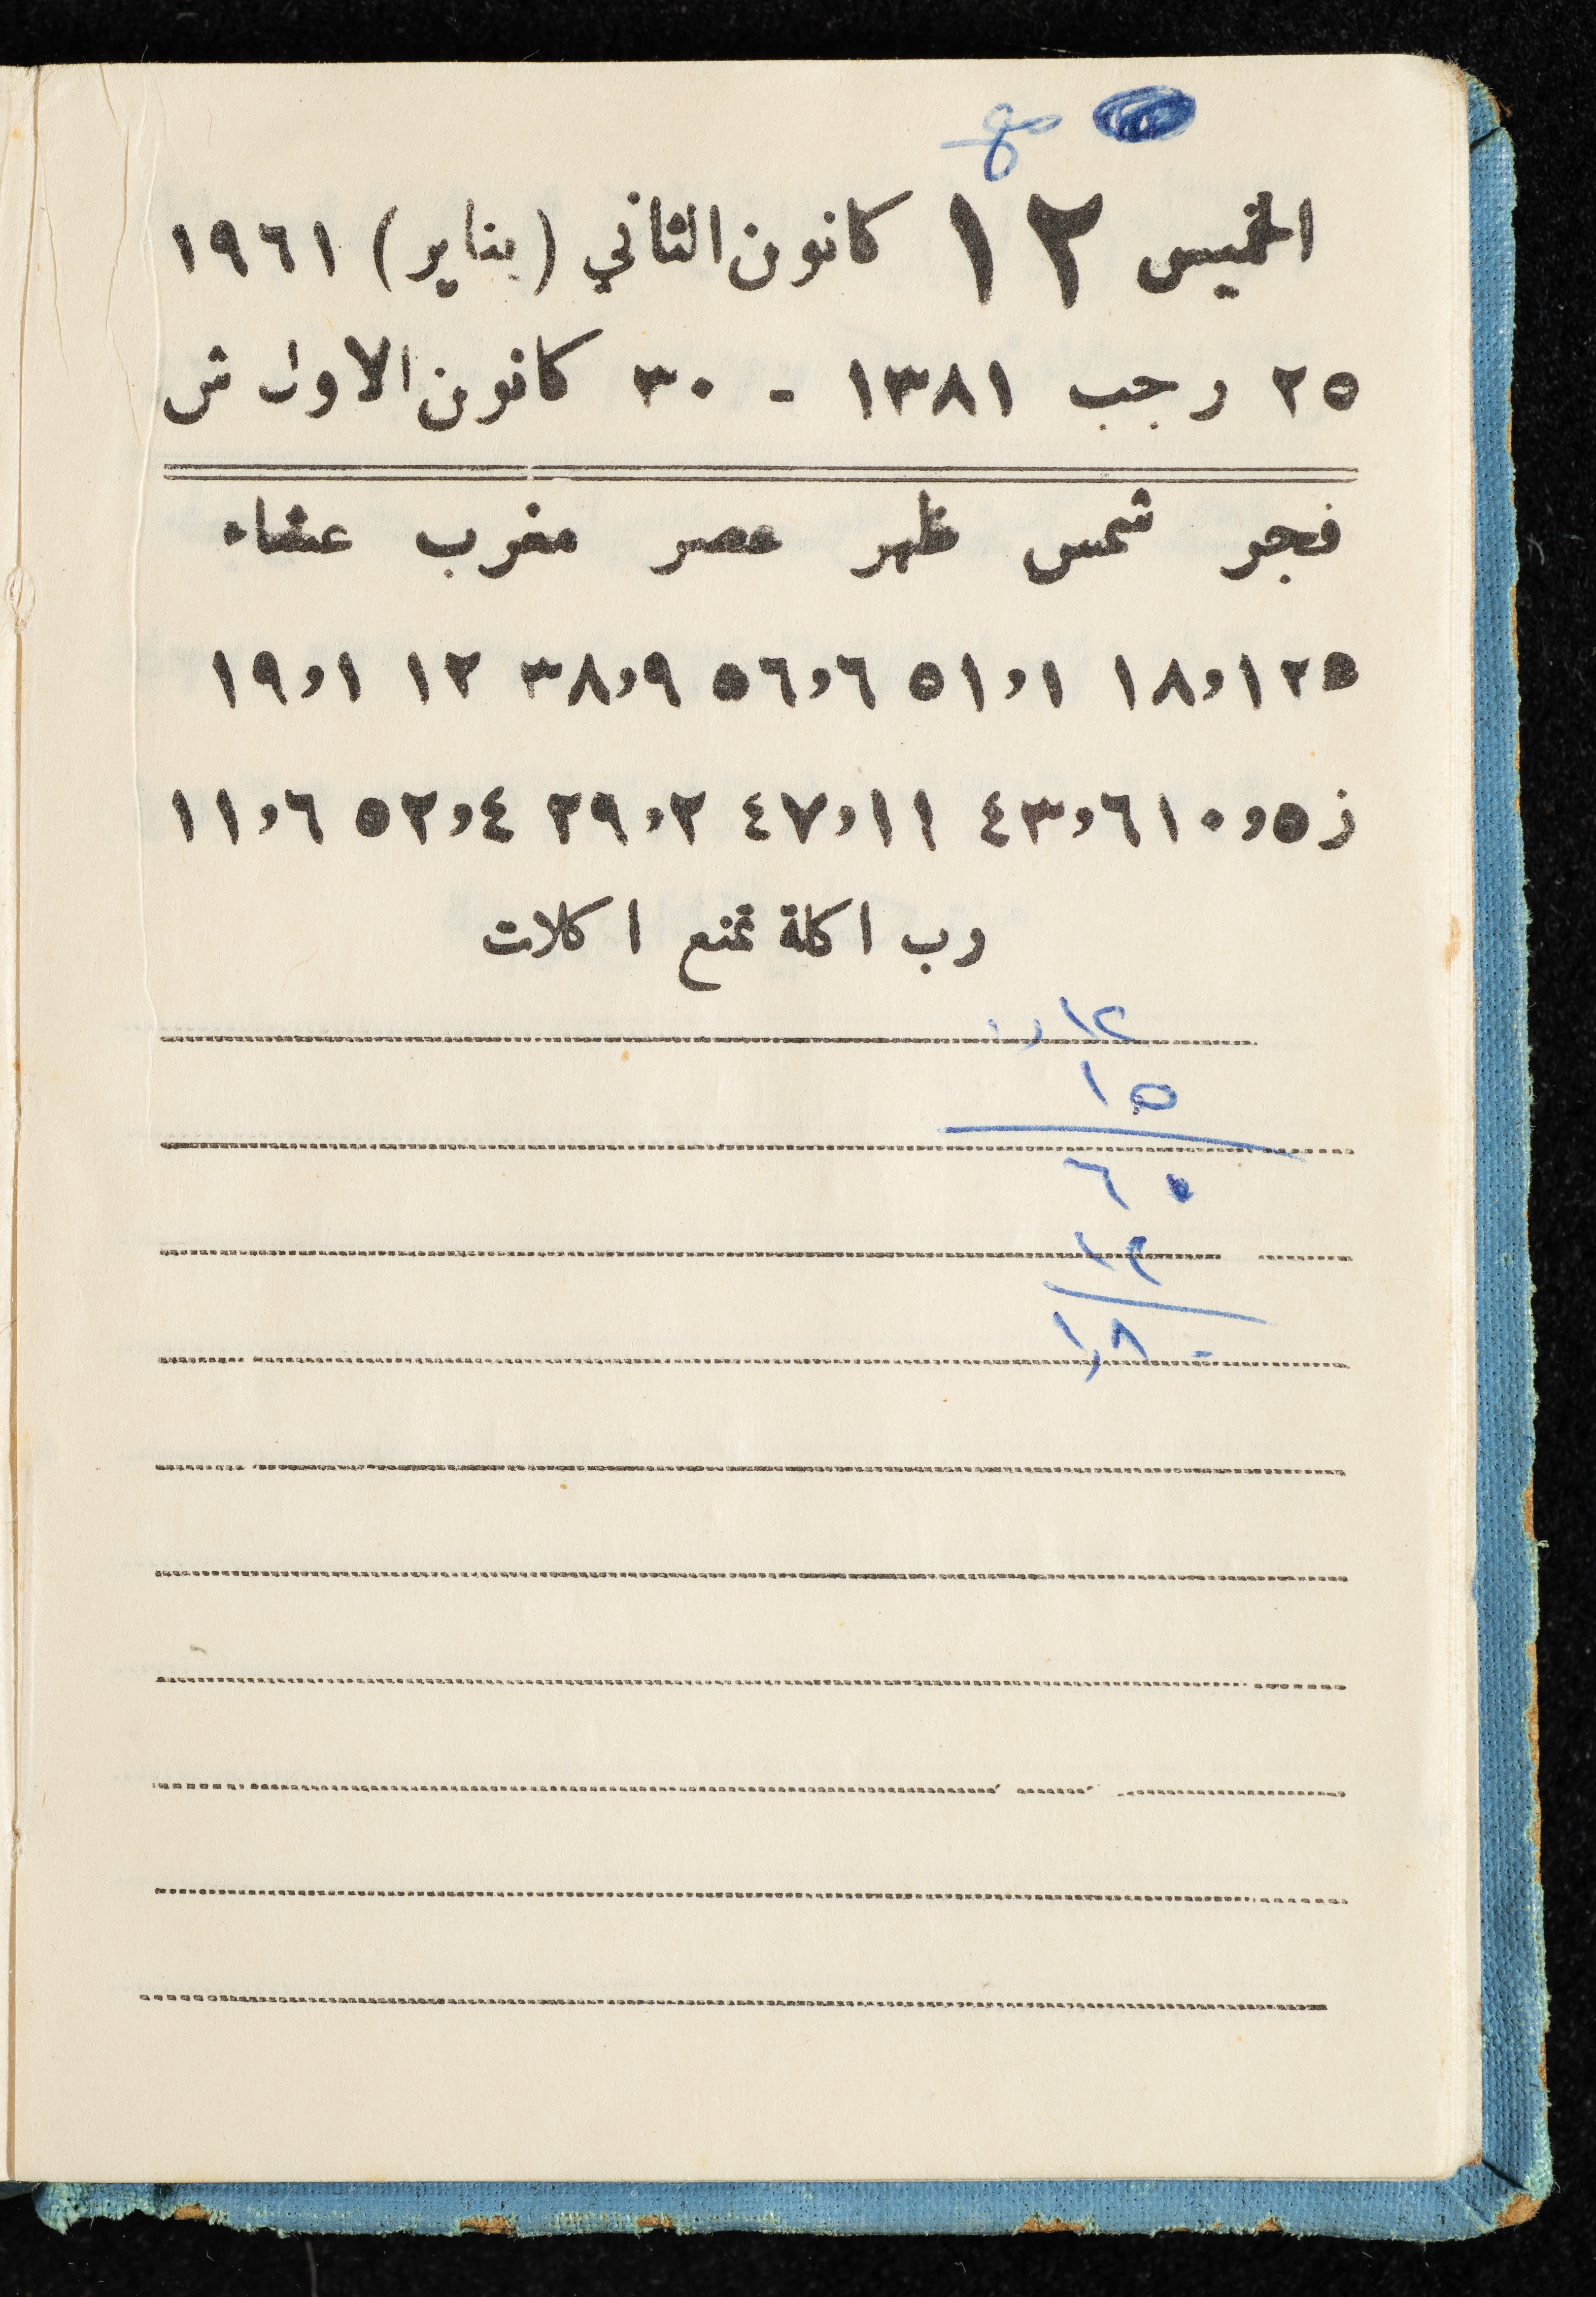 الخميس ١٢ كانون الثاني (يناير) ١٩٦١
٢٥ رجب ١٣٨١ - ٣٠ كانون الاول ش
فجر شمس ظهر عصر مغرب عشاء
١٨,١٢ ٥١,١ ٥٦,٦ ٣٨,٩ ١٢ ١٩,١
ز ٥,١٠ ٤٣,٦ ٤٧,١١ ٢٩,٢ ٥٢,٤ ١١,٦
رب اكلة تمنع اكلات
١٢
١٥
٦٠
١٢
١٨٠